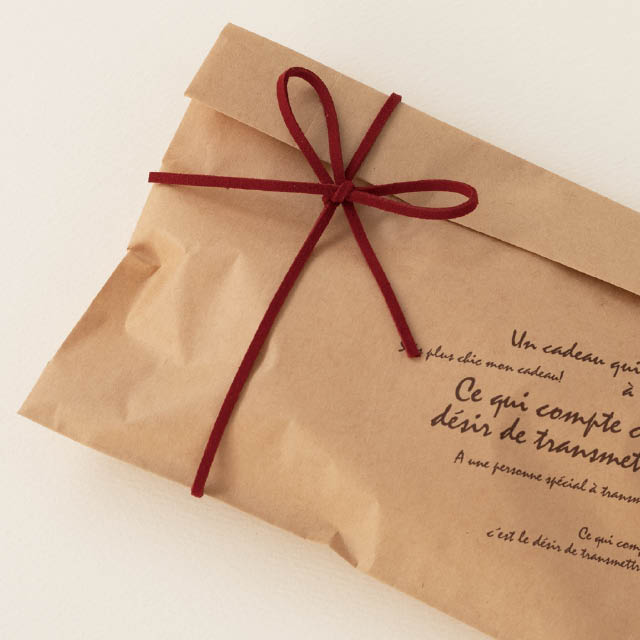 Un cadeau qui
plus chic mon cadeau!
à
Ce qui compte c
désir de transmett
A une personne spécial à transm
Ce qui comp
c'est le désir de transmettr